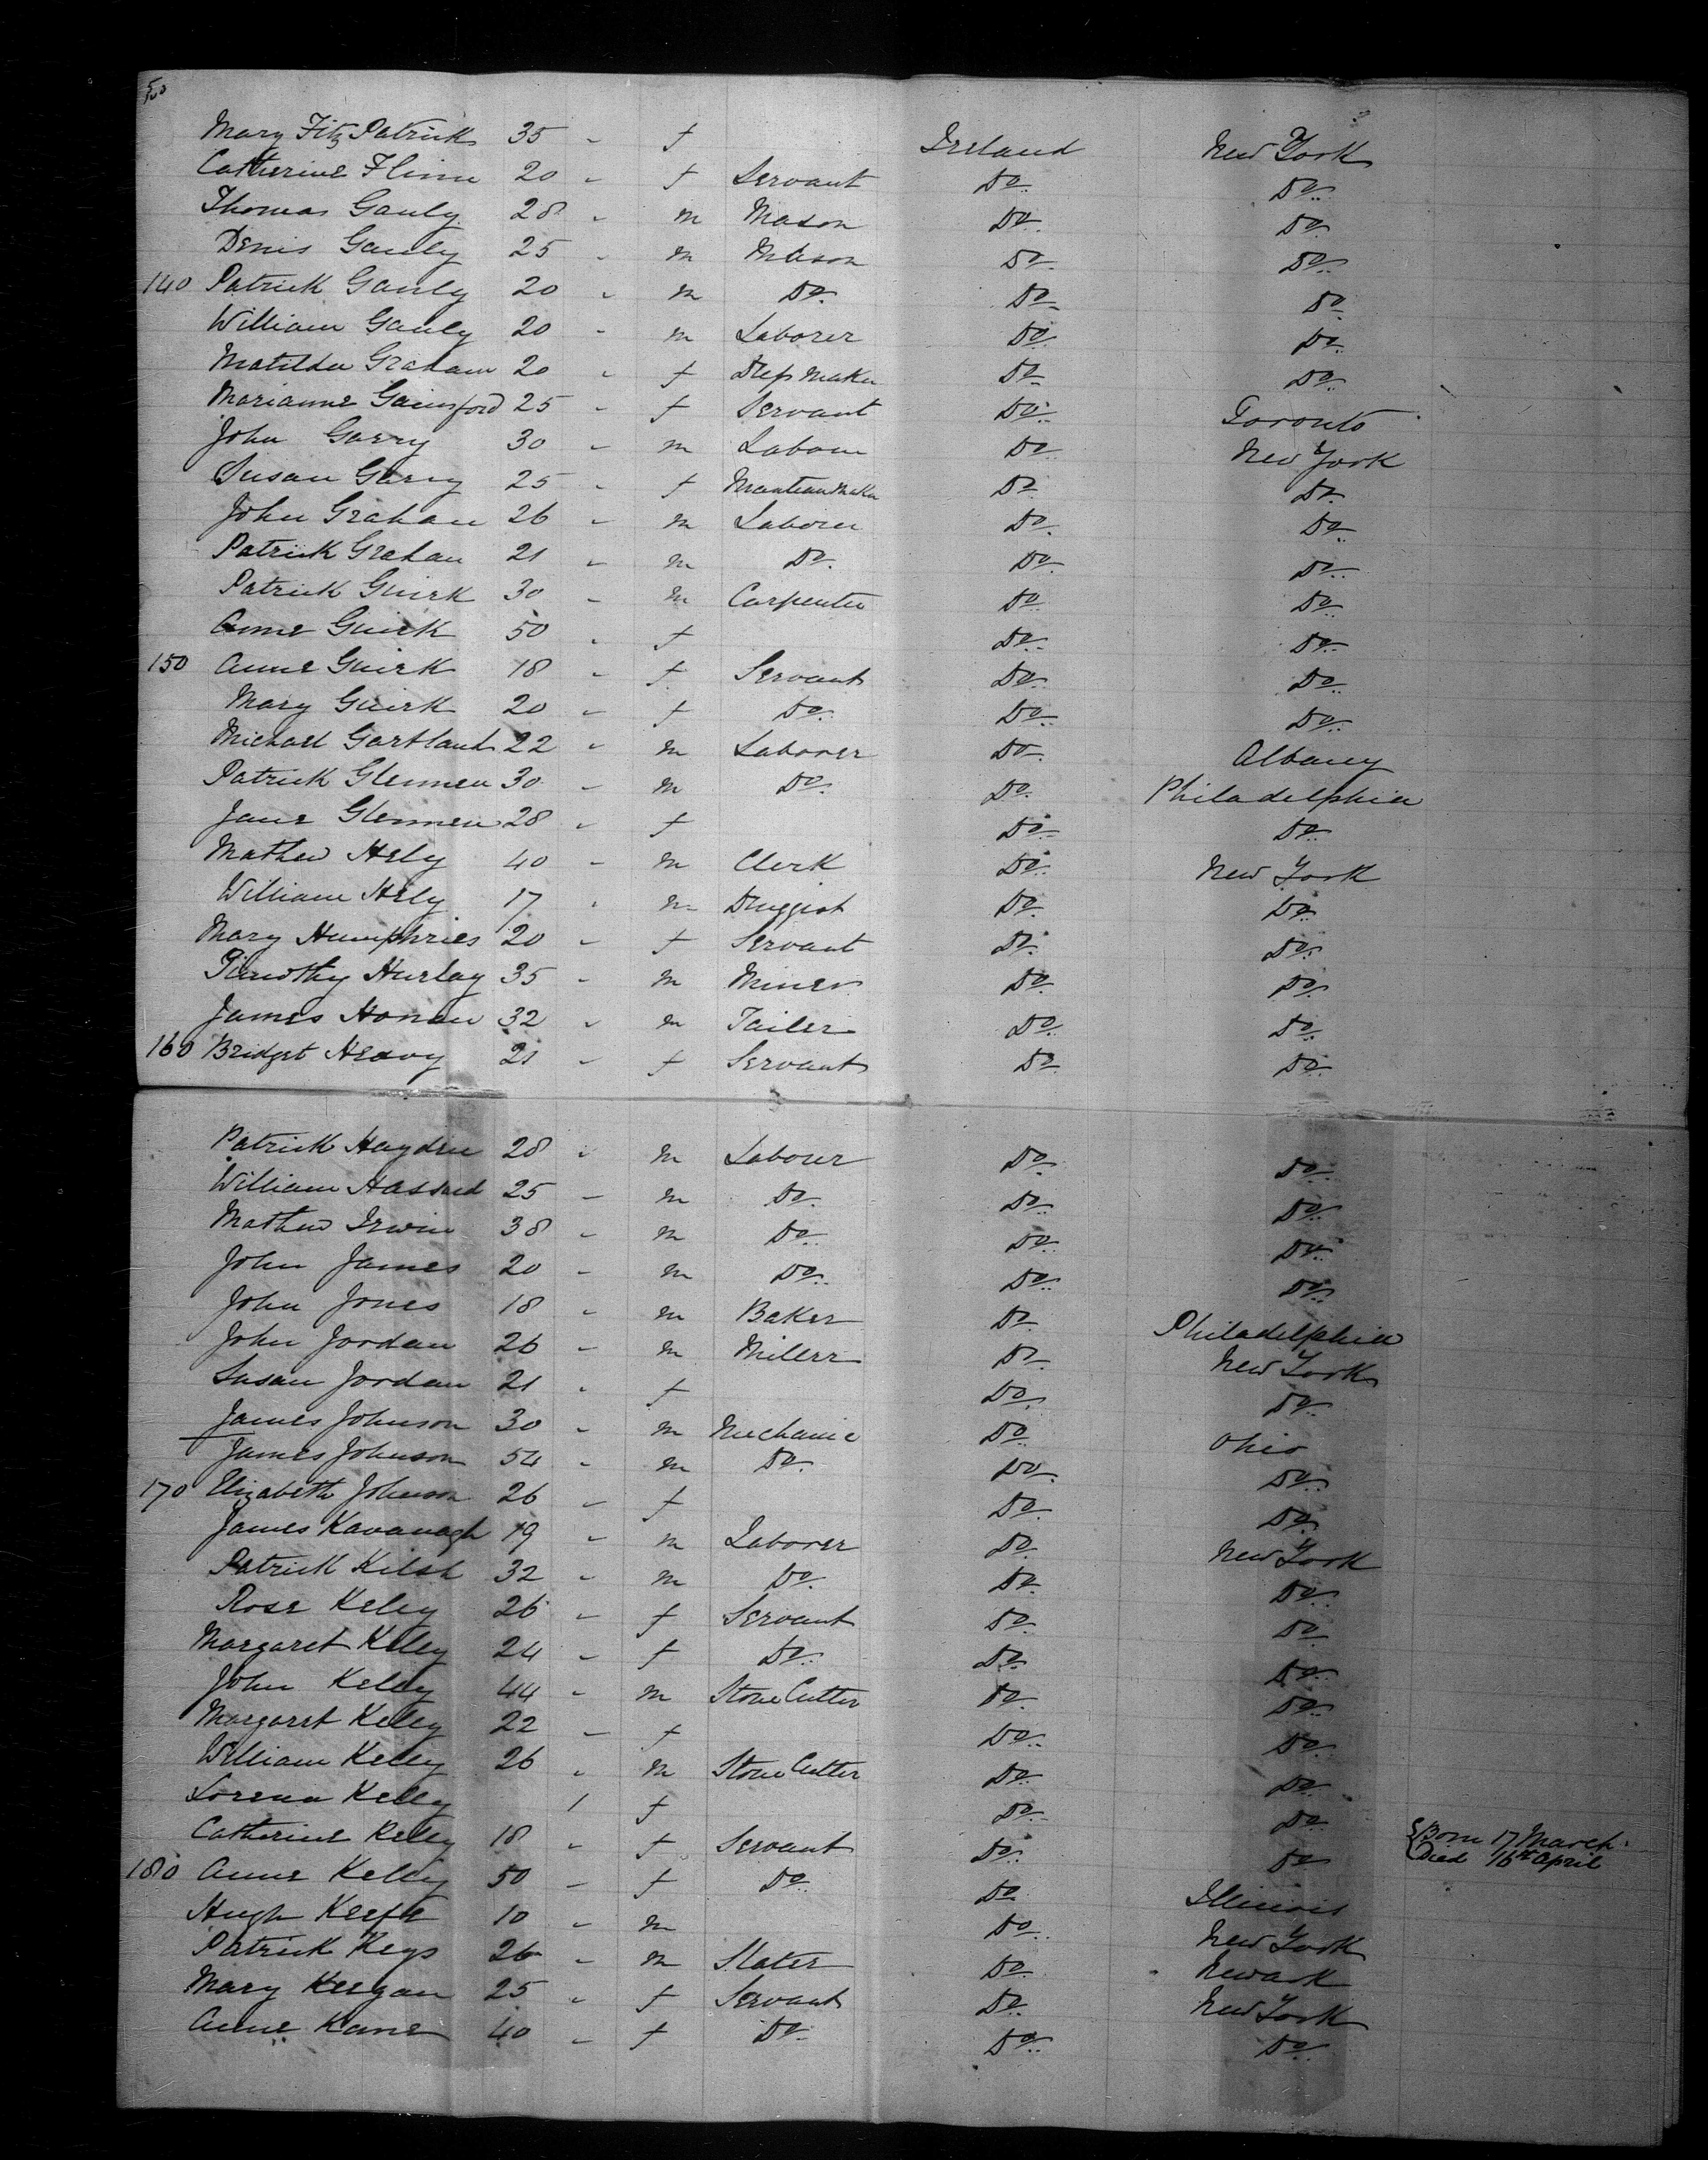 Mary Fitz Patrick 35 " f Ireland New York
Catherine Flinn 20 " f Servant Do Do
Thomas Gauly 28 " m Mason Do Do
Denis Gauly 25 " m Mason Do Do
140 Patrick Gauly 20 " m Do Do Do
William Gauly 20 " m Laborer Do Do
Matilda Graham 20 " f Dress Maker Do Do
Marianne Gainsford 25 " f Servant Do Toronto
John Garry 30 " m Laborer Do New York
Susan Garry 25 " f Manteau Maker Do Do
John Graham 26 " m Laborer Do Do
Patrick Graham 21 " m Do Do Do
Patrick Guirk 30 " m Carpenter Do Do
Anne Guirk 50 " f Do Do
150 Anne Guirk 18 " f Servant Do Do
Mary Guirk 20 " f Do Do Do
Michael Gartland 22 " m Laborer Do Albany
Patrick Glennen 30 " m Do Do Philadelphia
Jane Glennen 28 " f Do Do
Mathew Hely 40 " m Clerk Do New York
William Hely 17 " m Druggist Do Do
Mary Humphries 20 " f Servant Do Do
Timothy Hurlay 35 " m Miner Do Do
James Honan 32 " m Tailer Do Do
160 Bridget Heavy 21 " f Servant Do Do
Patrick Hayden 28 " m Laborer Do Do
William Hassard 25 " m Do Do Do
Mathew Irwin 38 " m Do Do Do
John James 20 " m Do Do Do
John Jones 18 " m Baker Do Philadelphia
John Jordan 26 " m Miller Do New York
Susan Jordan 21 " f Do Do
James Johnson 30 " m Mechanic Do Ohio
James Johnson 54 " m Do Do Do
170 Elizabeth Johnson 26 " f Do Do
James Kavanagh 19 " m Laborer Do New York
Patrick 32 " m Do Do Do
Rose Keley 26 " f Servant Do Do
Margaret Kelly 24 " f Do Do Do
John Kelly 44 " m Stone Cutter Do Do
Margaret Kelly 22 " f Do Do
William Kelly 26 " m Stone Cutter Do Do
Lorena Kelly 1 f Do Do { Born 17 March
Catherine Kelly 18 " f Servant Do Do Died 16th April
180 Anne Kelly 50 " f Do Do Illinois
Hugh Keefe 10 " m Do New York
Patrick Keys 26 " m Slater Do Newark
Mary Keegan 25 " f Servant Do New York
Anne Kane 40 " f Do Do Do